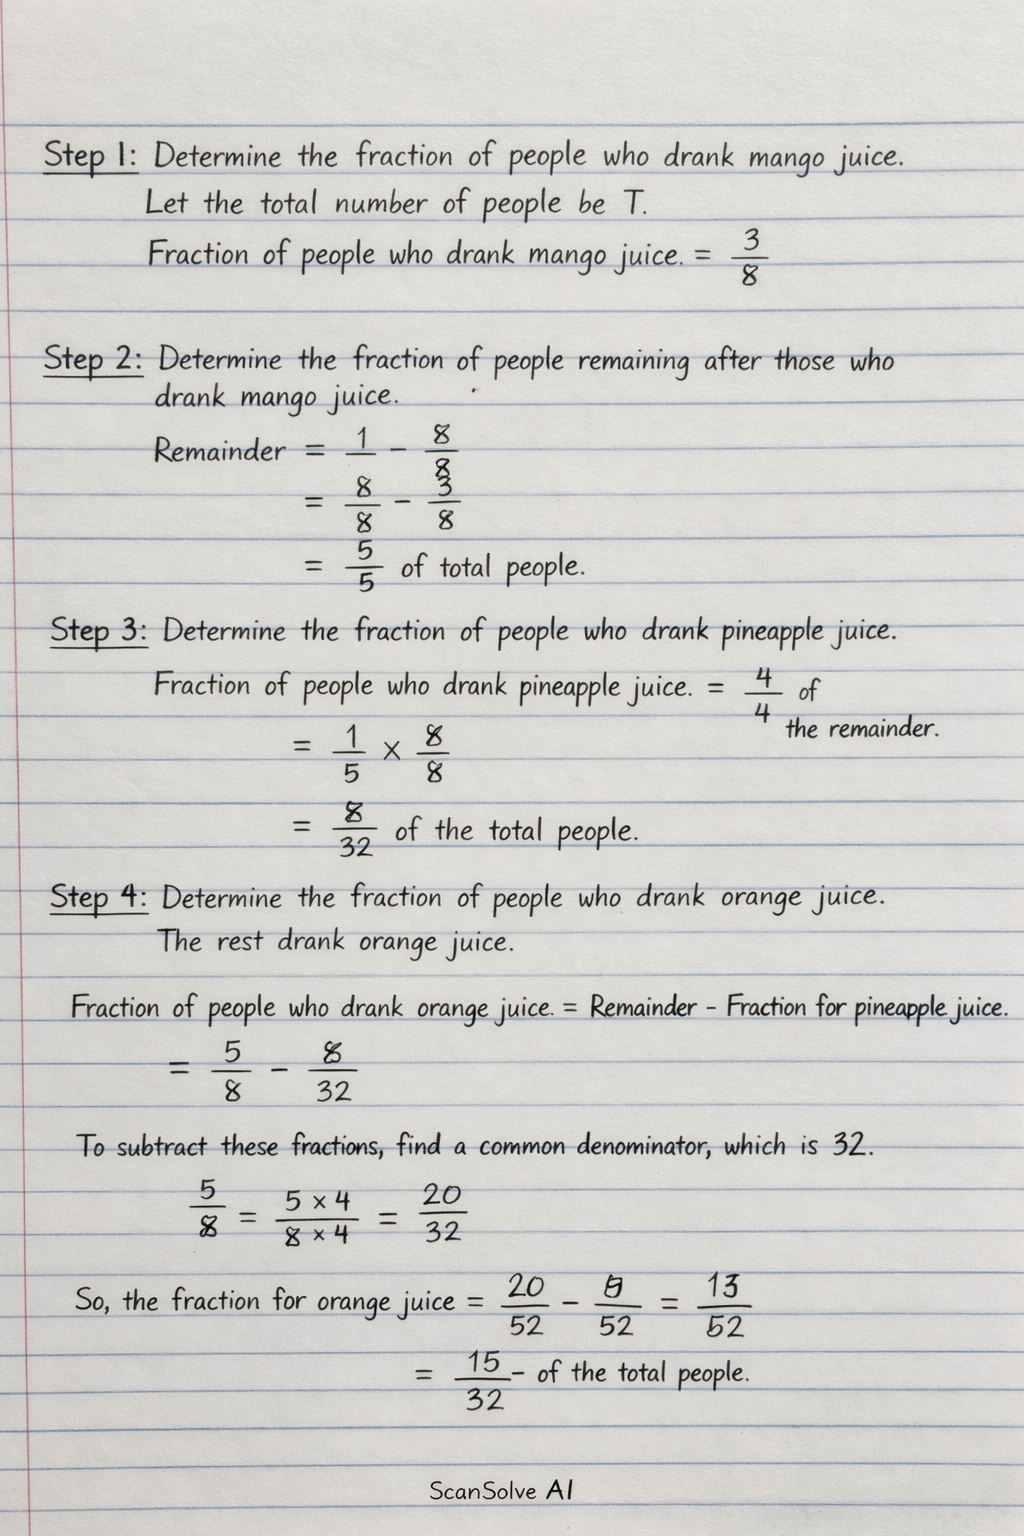 Step 1: Determine the fraction of people who drank mango juice.
Let the total number of people be T.
Fraction of people who drank mango juice. = 3/8
Step 2: Determine the fraction of people remaining after those who
drank mango juice.
Remainder = 1/ - 8/8
= 8/8 - 3/8
= 5/5 of total people.
Step 3: Determine the fraction of people who drank pineapple juice.
Fraction of people who drank pineapple juice. = 4/4 of
the remainder.
= 1/5 × 8/8
= 8/32 of the total people.
Step 4: Determine the fraction of people who drank orange juice.
The rest drank orange juice.
Fraction of people who drank orange juice. = Remainder - Fraction for pineapple juice.
= 5/8 - 8/32
To subtract these fractions, find a common denominator, which is 32.
5/8 = 5 × 4/8 × 4 = 20/32
So, the fraction for orange juice = 20/52 - /52 = 13/52
= 15/32 - of the total people.
ScanSolve AI